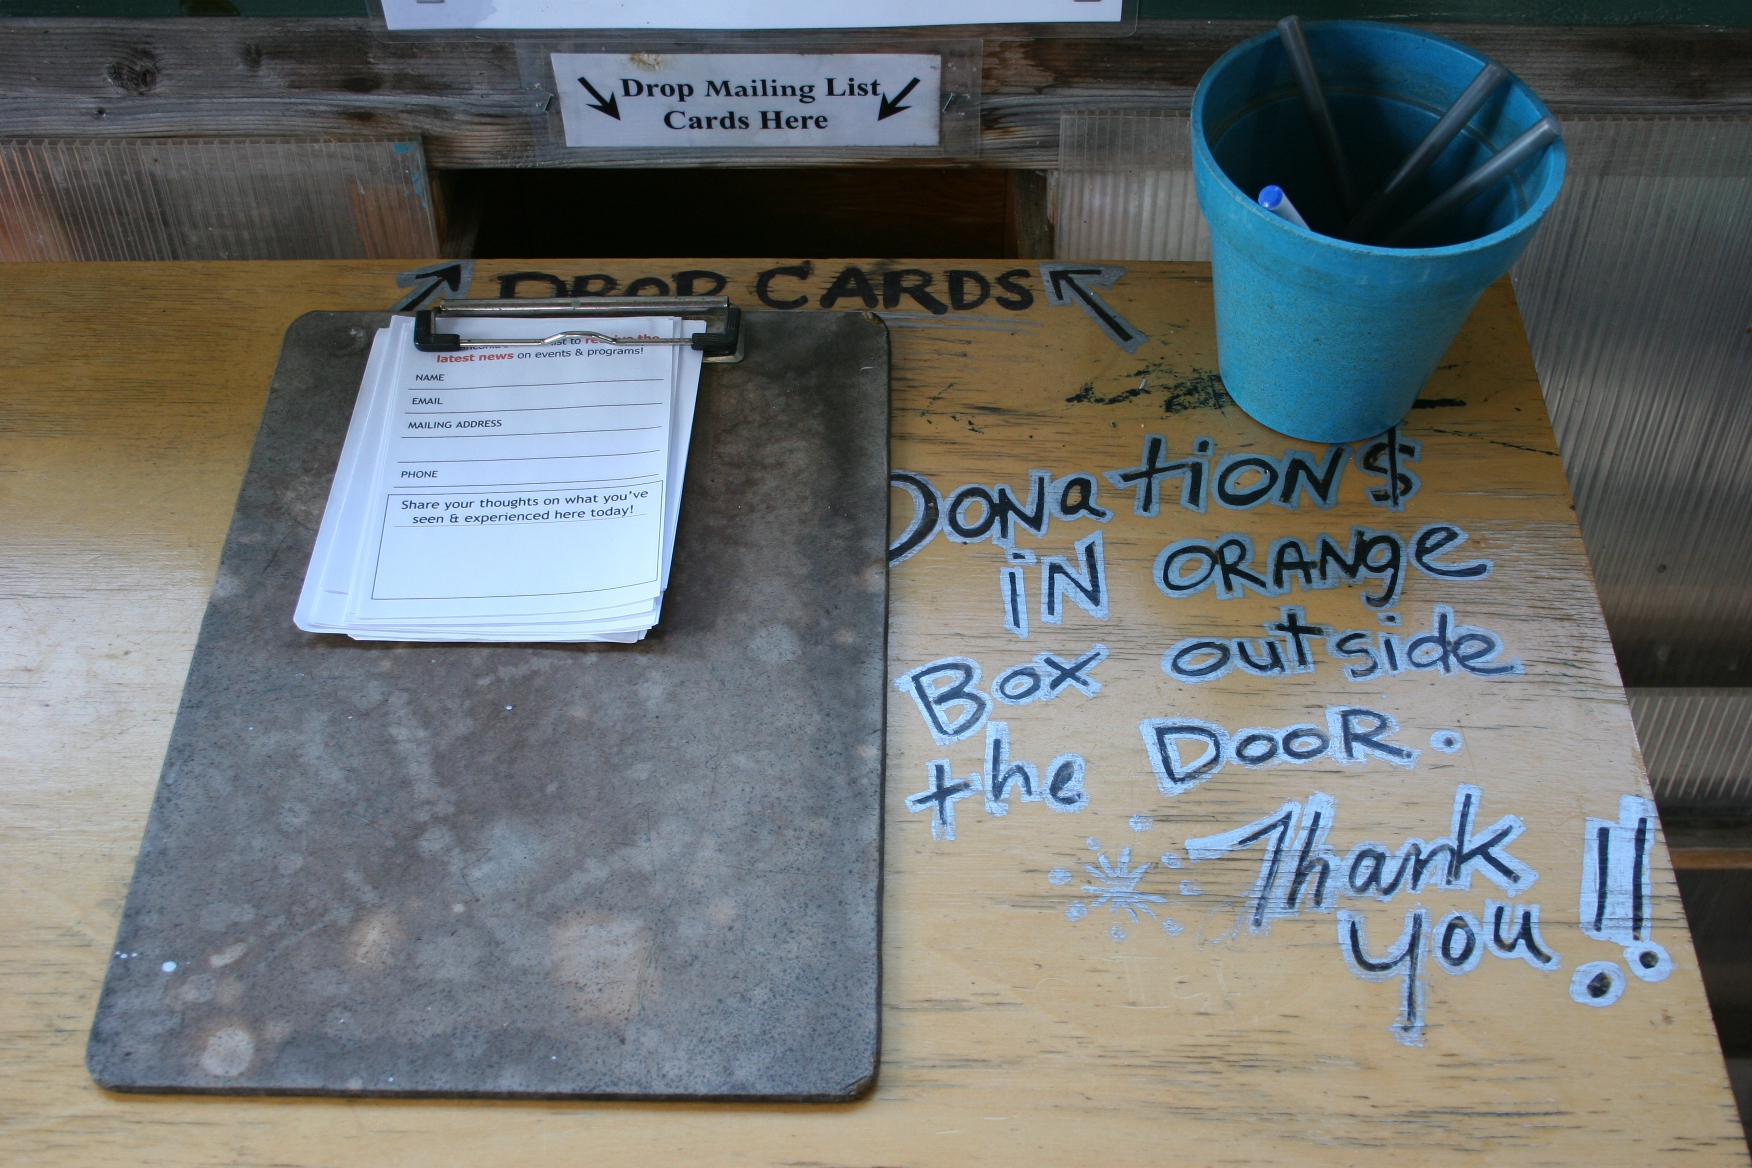 Drop Mailing List
Cards Here
DROP CARDS
list to receive the
latest news on events & programs!
NAME
EMAIL
MAILING ADDRESS
PHONE
Share your thoughts on what you've
seen & experienced here today!
DONatiON$
iN ORANge
Box outside
the DOOR.
Thank
you!!